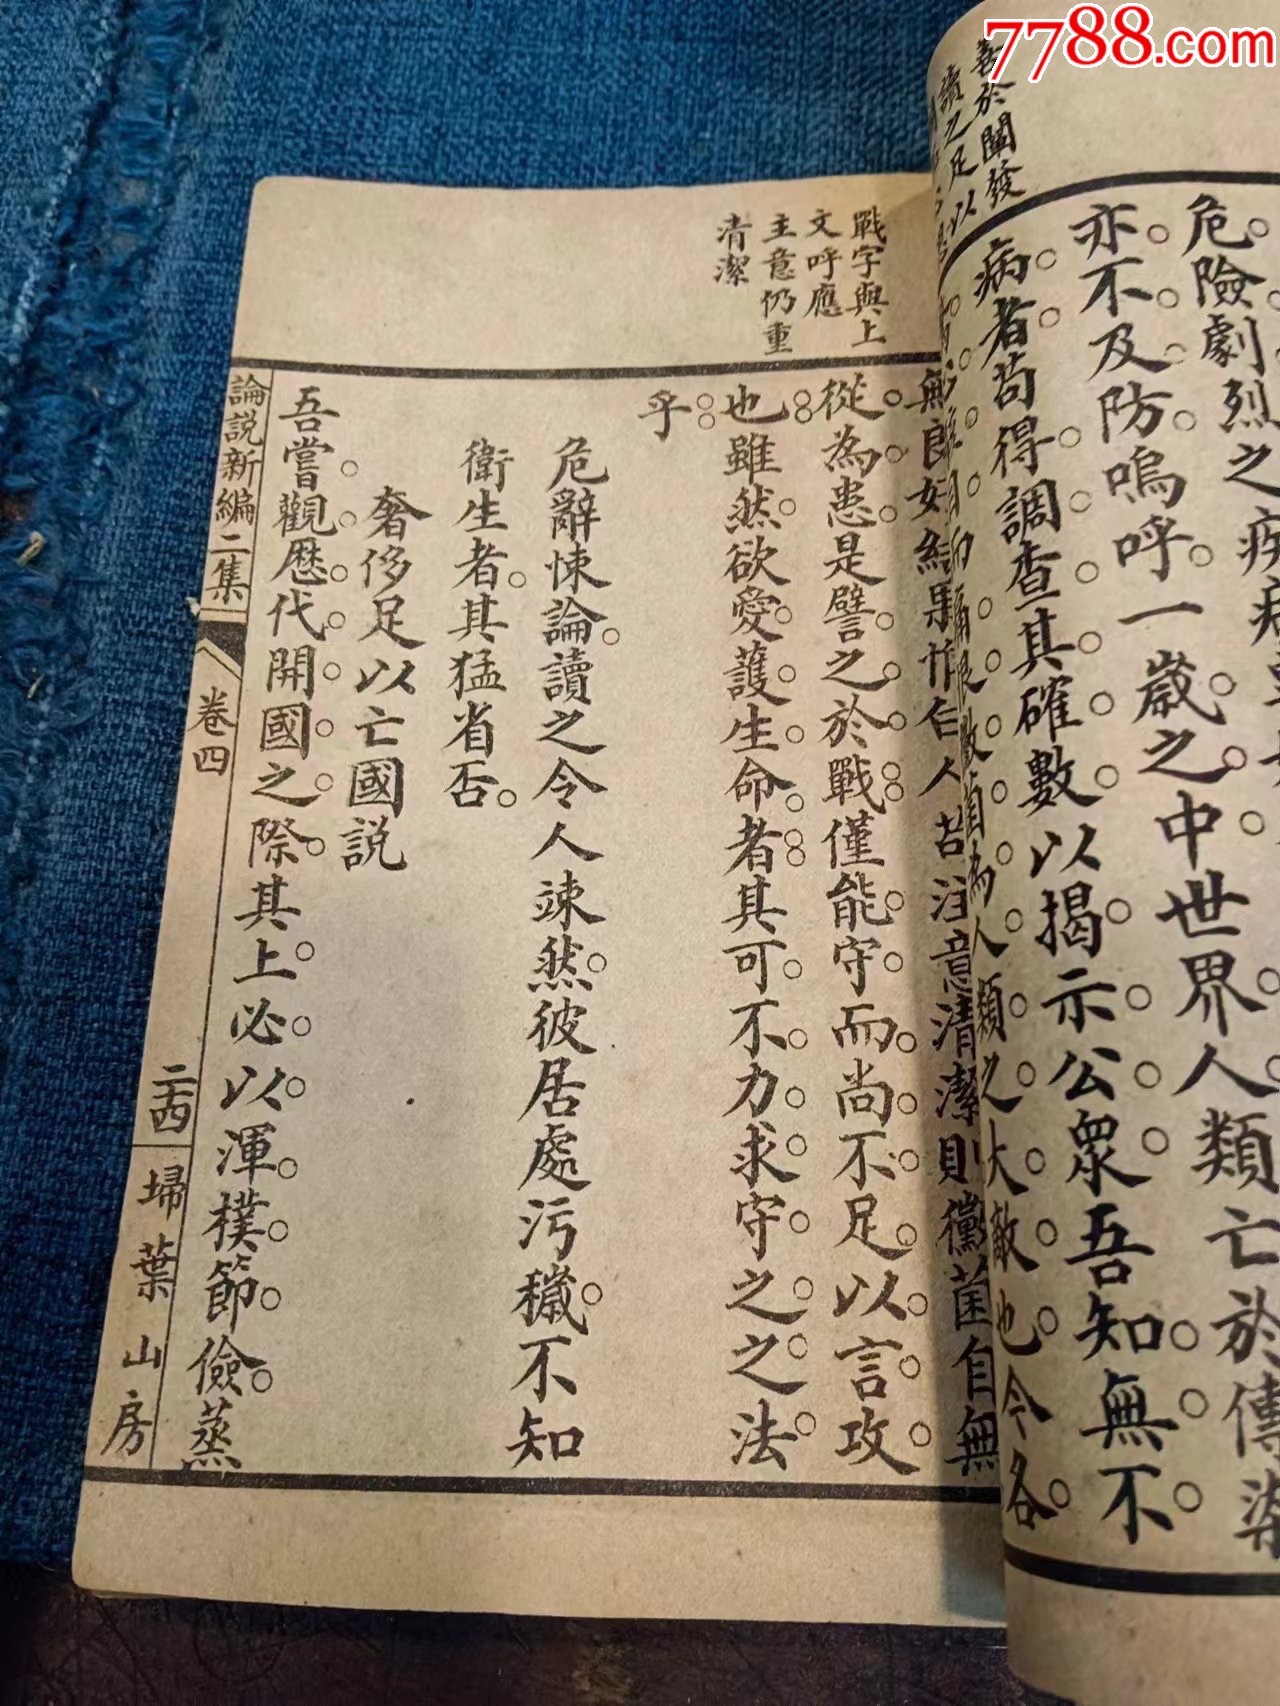 7788.com
善於闡發
讀之足以
危險劇烈之疾病
亦不及防嗚呼一歲之中世界人類亡於傳染
病者苟得調查其確數以揭示公眾吾知無不
人類之大敵也今各
注意清潔則黴菌自無
從為患是譬之於戰僅能守而尚不足以言攻
也雖然欲愛護生命者其可不力求守之之法
乎
戰字與上
文呼應
主意仍重
清潔
危辭悚論讀之令人竦然彼居處污穢不知
衛生者其猛省否
奢侈足以亡國說
吾嘗觀歷代開國之際其上必以渾樸節儉蒸
論說新編二集
卷四
二十四
埽葉山房